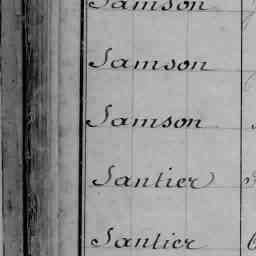 Samson
Samson
Samson
Santier
Santier